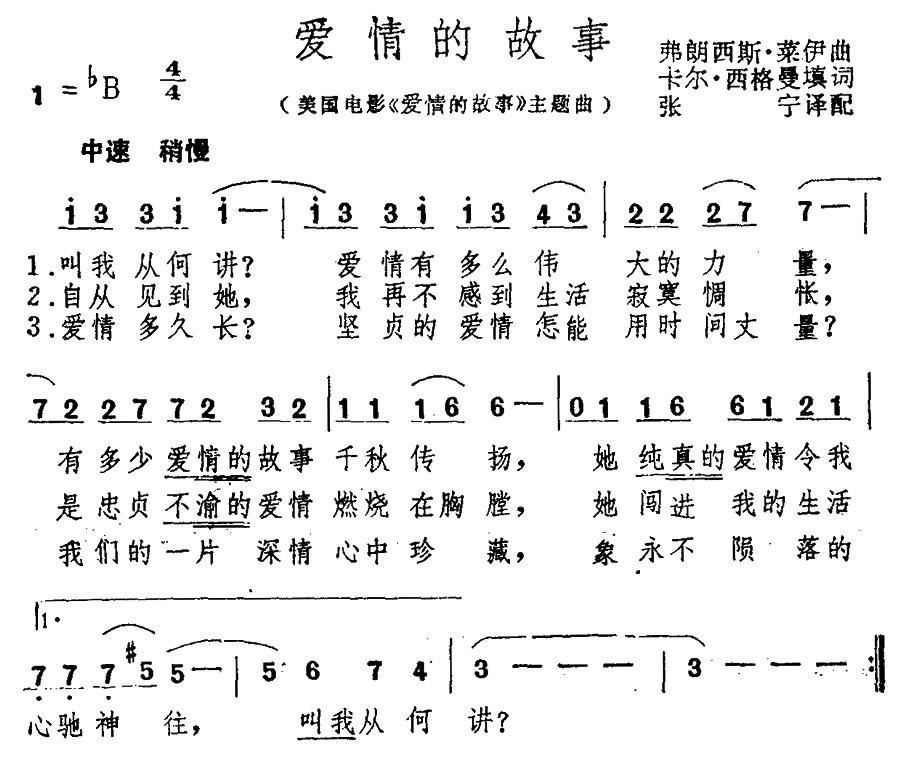 爱情的故事
1=♭B 4/4
弗朗西斯·莱伊曲
卡尔·西格曼填词
(美国电影《爱情的故事》主题曲)
张 宁译配
中速 稍慢
i3 3i i— | i3 3i i3 43 | 22 27 7— |
1.叫我从何讲? 爱情有多么伟大的力量,
2.自从见到她, 我再不感到生活寂寞惆怅,
3.爱情多久长? 坚贞的爱情怎能用时间丈量?
72 27 72 32 | 11 16 6— | 01 16 61 21 |
有多少爱情的故事千秋传扬, 她纯真的爱情令我
是忠贞不渝的爱情燃烧在胸膛, 她闯进我的生活
我们的一片深情心中珍藏, 象永不陨落的
1.
7 7 7 #5 5— | 5 6 7 4 | 3 — — — | 3 — — — :||
心驰神往, 叫我从何讲?